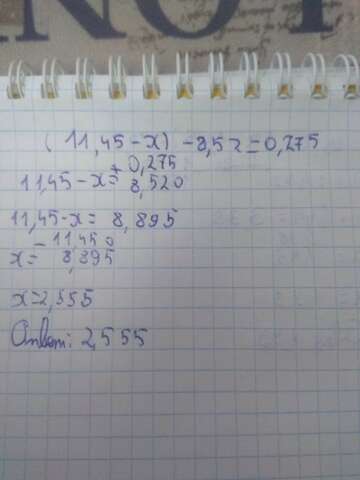 (11,45-x)-8,52=0,275
11,45-x=+0,275
8,520
11,45-x=8,895
x=-11,450
8,895
x=2,555
Ответ: 2,555